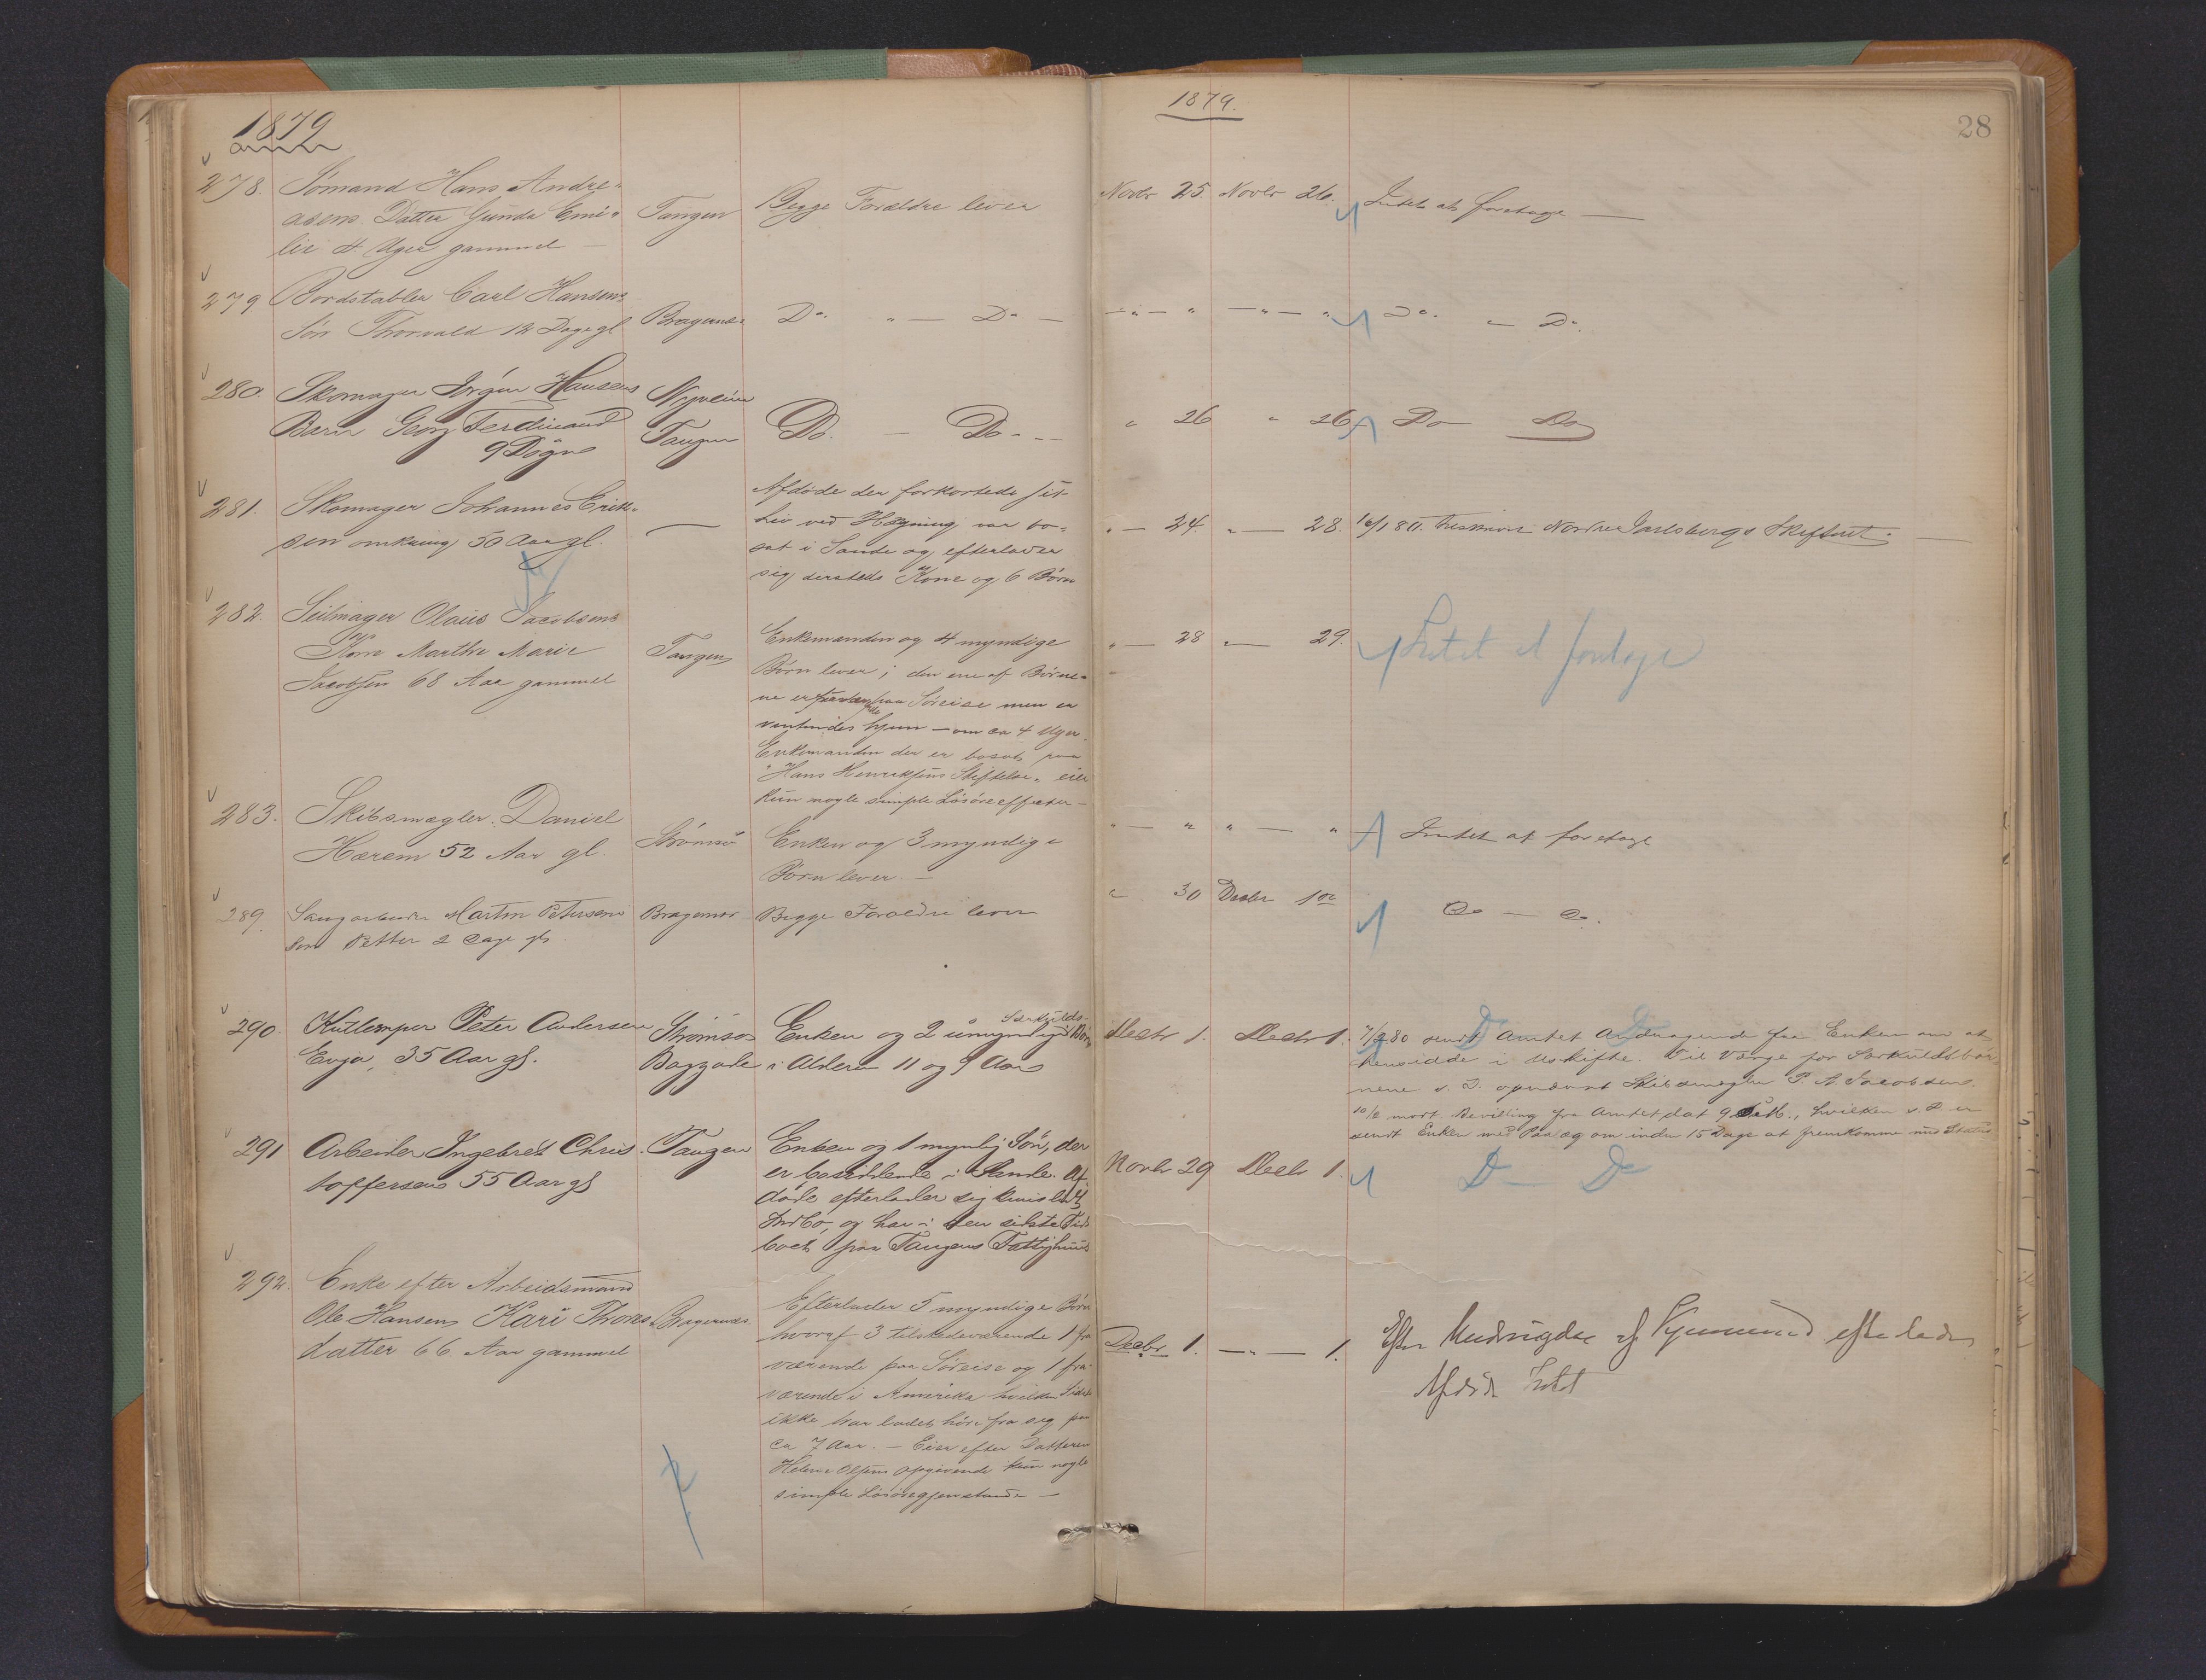 1879
278. Sømand Hans Andre-
asens Datter Gunda Emi-
lie 4 Uger gammel —
Tangen
Begge Forældre lever
279 Bordstabler Carl Hansens
Søn Thorvald 12 Dage gl
Bragernæs
Do. " — Do —
280. Skomager Jörgen Hansens
Barn Georg Ferdinand
9 Døgn
Nyveien
Tangen
Do. — Do. —
281. Skomager Johannes Erik-
sen omkring 50 Aar gl.
—
Afdøde der forkortede sit
Liv ved Hægning var bo-
sat i Sande og efterlader
sig dersteds Kone og 6 Børn
282. Seilmager Olaus Jacobsens
Kone Marthe Marie
Jacobsen 68 Aar gammel
Tangen
Enkemanden og 4 myndige
Børn lever; den ene af Børne-
ne er fraværende paa Søreise men er
ventendes hjem — om ca 4 Uger.
Enkemanden der er bosat paa
"Hans Henriksens Stiftelse" eier
kun nogle simple Løsøreeffecter —
283. Skibsmægler Daniel
Hærem 52 Aar gl.
Strømsø
Enken og 3 myndige
Børn lever —
289. Saugarbeider Martin Petersens
Søn Petter 2 Dage gl
Bragernes
Begge Forældre lever
290. Kullemper Peter Andersen
Enga, 35 Aar gl.
Strømsøs
Baggade
Særkulds-
Enken og 2 umyndige Børn
i Alderen 11 og 9 Aar
291 Arbeider Ingebret Chris-
toffersen 55 Aar gl
Tangen
Enken og 1 myndig Søn, der
er bosiddende i Sande. Af-
døde efterlader sig kuns lidt
Indbo, og har i den sidste Tid
boet paa Tangens Fattighuus
292. Enke efter Arbeidsmand
Ole Hansen, Kari Thores-
datter 66 Aar gammel
Bragernæs
Efterlader 5 myndige Børn
hvoraf 3 tilstedeværende 1 fra-
værende paa Søreise og 1 fra-
værende i Amerika hvilken Sidste
ikke har ladet høre fra sig paa
ca 7 Aar. — Eier efter Datteren
Helene Olsens Opgivende kun nogle
simple Løsøregjenstande —
1879.
28
Novbr 25. Novbr 26. Intet at foretage —
— " — " — " — " Do. — Do.
" 26 " 26 Do Do
" — 24. " — 28. 16/1 80. tilskrevet Nordre Jarlsbergs Skifteret. —
" — 28 " — 29. Intet at foretage
" — " " — " Intet at foretage
" 30 Decbr 1ste Do — Do.
Decbr 1. Decbr 1. 7/2 80 sendt Amtet Andragende fra Enken om at
hensidde i Uskifte. Til Værge for Særkuldsbør-
nene s. D. opnævnt Skibsmægler P. A. Jacobsen.
10/2 modt. Bevilling fra Amtet dat 9 Feb., hvilken s. D. er
sendt Enken med Paalæg om inden 15 Dage at fremkomme med Status
Do Do
Novbr 29 Decbr 1. Do Do
Decbr 1. — " — 1. Efter Medsigelse af efterlader
Afdøde Intet